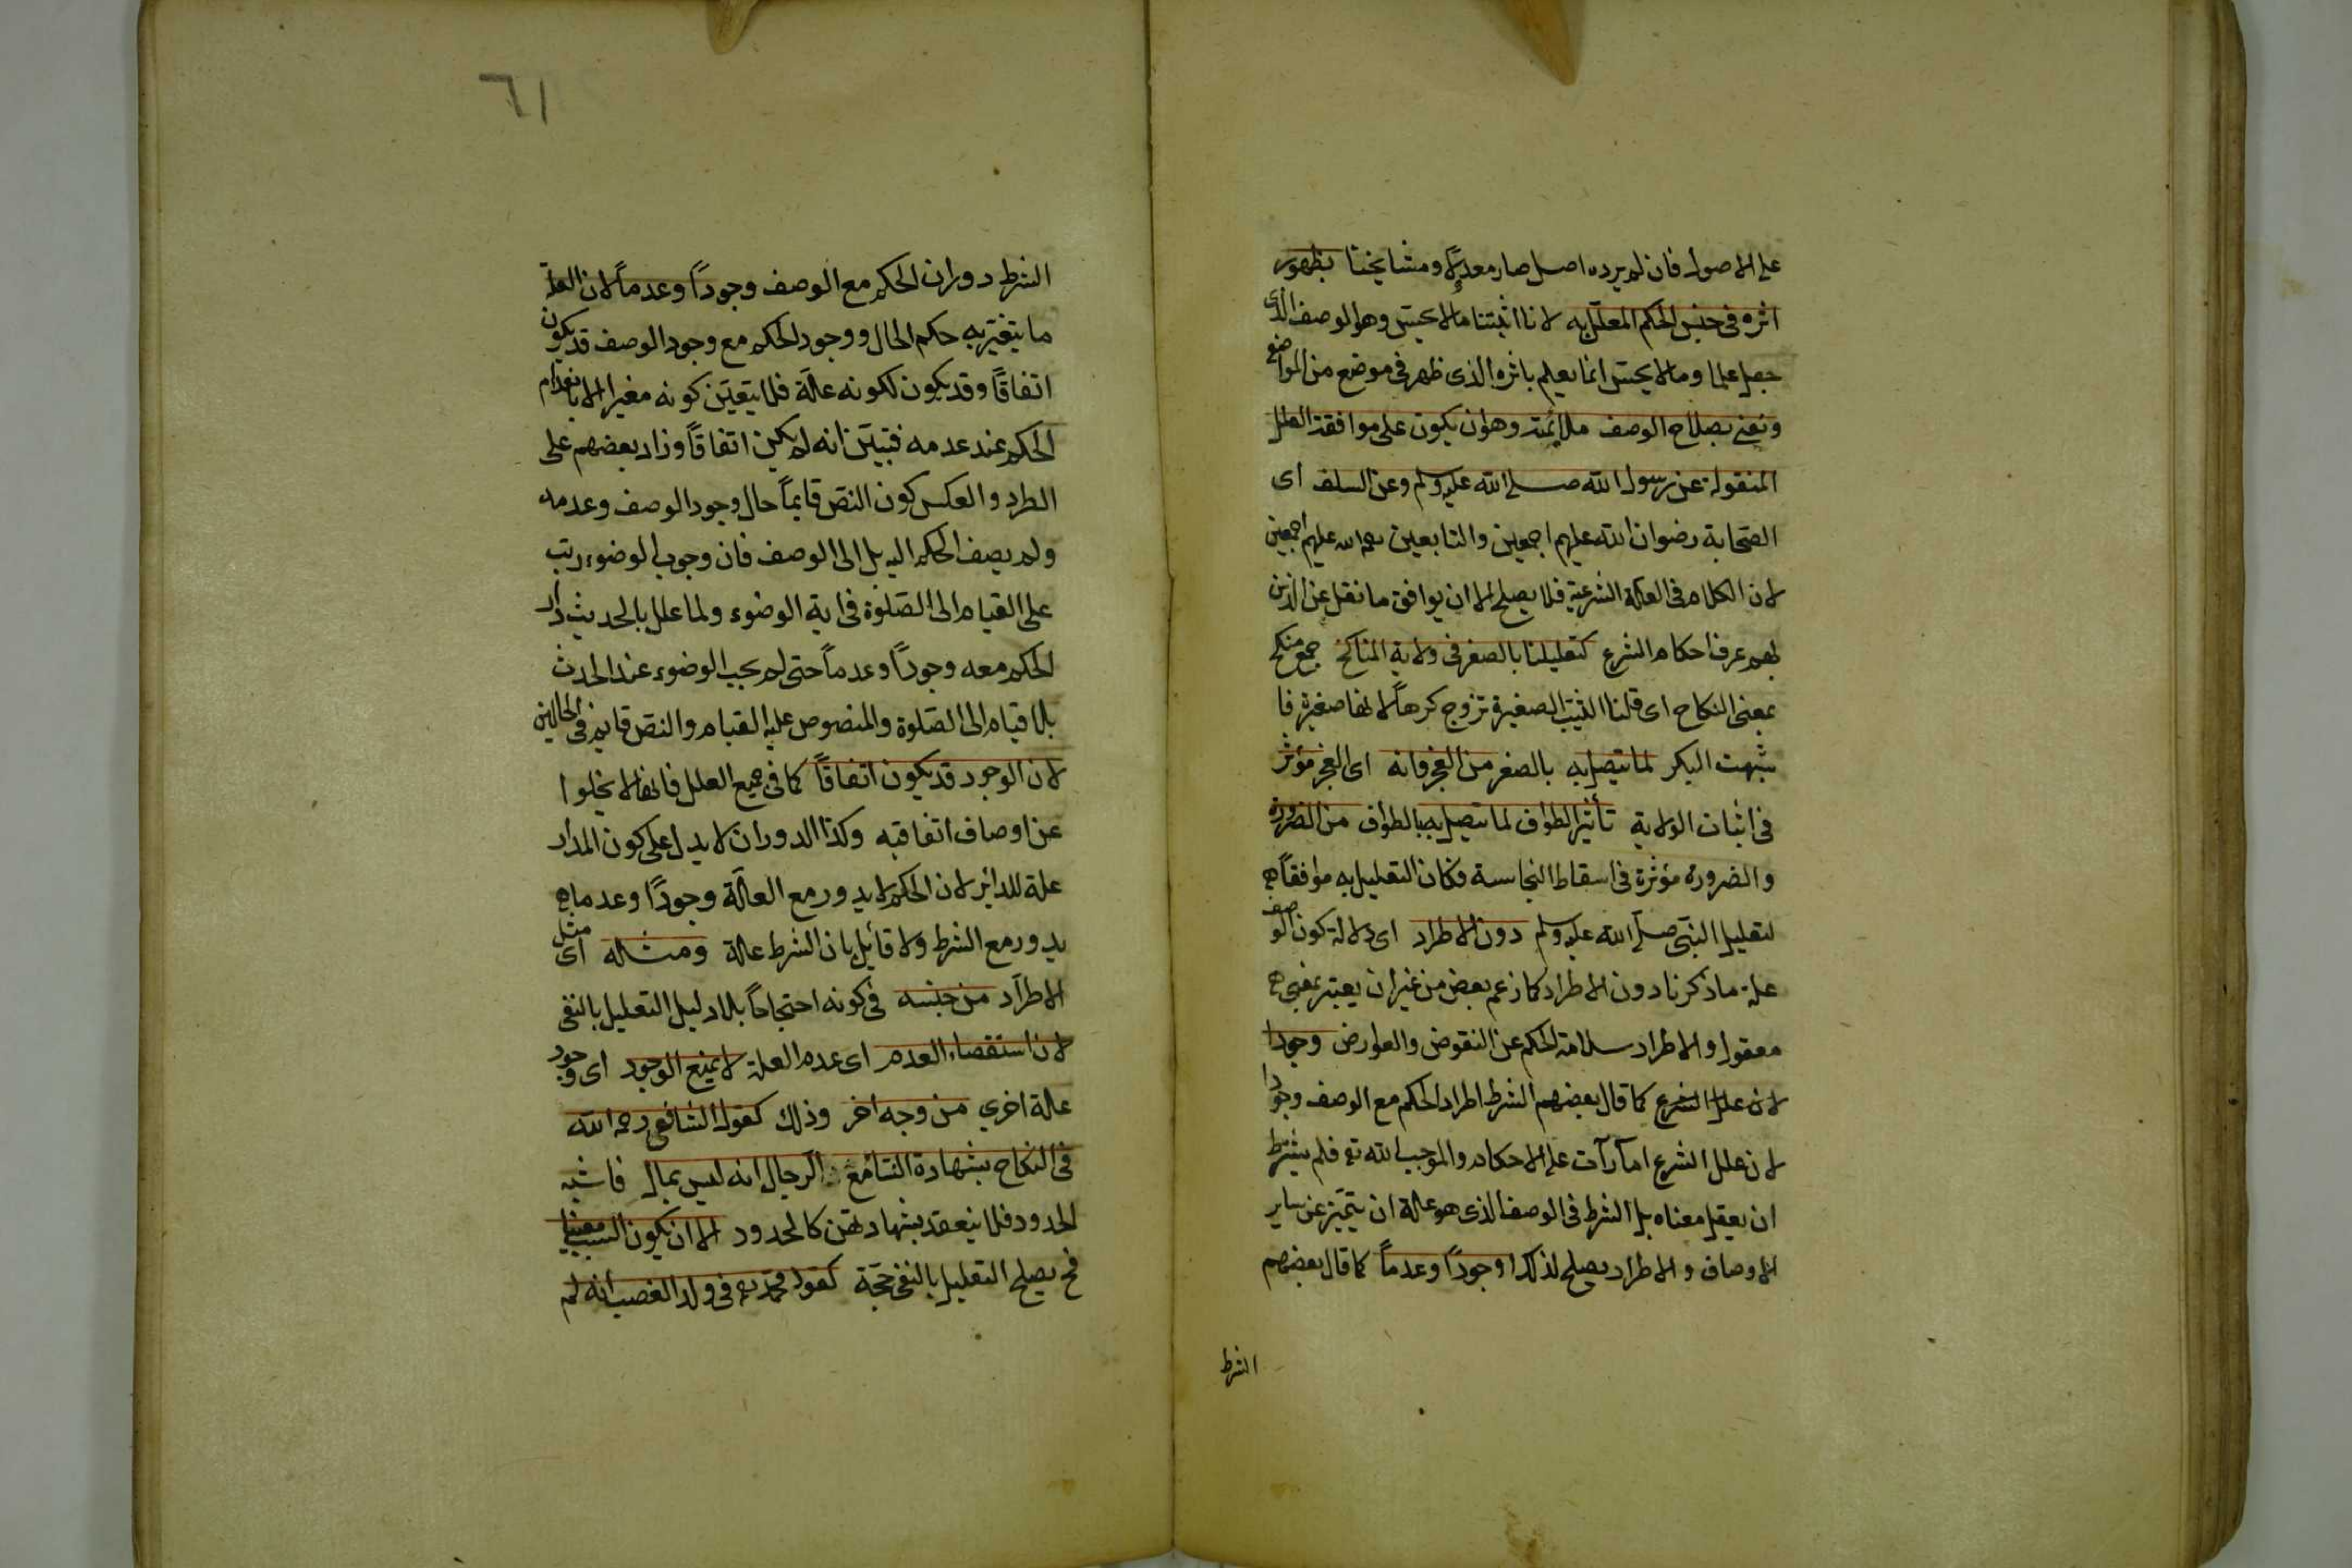 على الاصول فان لم يرده اصل صار معدلا ومشايخنا بظهور
اثره فى جنس الحكم المعلل به لانا اثبتنا ما لا يحس وهو الوصف الذى
جعل علما وما لا يحس انما يعلم باثره الذى ظهر فى موضع من المواضع
ونعنى بصلاح الوصف ملائمته وهو ان يكون على موافقة العلل
المنقولة عن رسول الله صلى الله عليه وسلم وعن السلف اى
الصحابة رضوان الله عليهم اجمعين والتابعين رحمة الله عليهم اجمعين
لان الكلام فى العلة الشرعية فلا يصلح الا ان يوافق ما نقل عن الذين
بهم عرف احكام الشرع كتعليلنا بالصغر فى ولاية المناكح جمع منكح
بمعنى النكاح اى قلنا الثيب الصغيرة تزوج كرهاً لانها صغيرة فا
شبهت البكر لما يتصل به بالصغر من العجز فانه اى العجز مؤثر
فى اثبات الولاية تأثير الطواف لما يتصل به بالطواف من الضرورة
والضرورة مؤثرة فى اسقاط النجاسة فكان التعليل به موافقاً
لتعليل النبى صلى الله عليه وسلم دون الاطراد اى دلالة كون الوصف
علة ما ذكرنا دون الاطراد كما زعم بعض من غير ان يعتبر بمعنى
معقول والاطراد سلامة الحكم عن النقوض والعوارض وجودا
لان علل الشرع كما قال بعضهم الشرط اطراد الحكم مع الوصف وجودا
لان علل الشرع امارات على الاحكام والموجب الله تع فلم يشترط
ان يعقل معناه بل الشرط فى الوصف الذى هو علة ان يتميز عن ساير
الاوصاف والاطراد يصلح لذلك او جوداً وعدماً كما قال بعضهم
الشرط
٦١
الشرط دوران الحكم مع الوصف وجوداً وعدماً لان العلة
ما يتغير به حكم الحال ووجود الحكم مع وجود الوصف قد يكون
اتفاقاً وقد يكون لكونه علة فلا يتعين كونه مغيرا الا بانعدام
الحكم عند عدمه فتبين انه لم يكن اتفاقاً وزاد بعضهم على
الطرد والعكس كون النص قايماً حال وجود الوصف وعدمه
ولم يضف الحكم اليه بل الى الوصف فان وجوب الوضوء رتب
على القيام الى الصلوة فى اية الوضوء ولما علل بالحديث دار
الحكم معه وجوداً وعدماً حتى لم يجب الوضوء عند الحدث
بلا قيام الى الصلوة والمنصوص عليه القيام والنص قايم فى الحالين
لان الوجود قد يكون اتفاقاً كما فى جميع العلل فانها لا يخلوا
عن اوصاف اتفاقيه وكذا الدوران لا يدل على كون المدار
علة للدائر لان الحكم لا يدور مع العلة وجوداً وعدما
يدور مع الشرط ولا قائل بان الشرط علة ومثله اى مثل
الاطراد من جنسه فى كونه احتجاجاً بلا دليل التعليل بالنفى
لان استقصاء العدم اى عدم العلة لا يمنع الوجود اى وجود
علة اخرى من وجه اخر وذلك كقول الشافعى رحمه الله
فى النكاح بشهادة النساء مع الرجال انه ليس بمال فاشبه
الحدود فلا ينعقد بشهادتهن كالحدود الا ان يكون السبب معينا
فح يصلح التعليل بالنفى حجة كقول محمد فى ولد الغصب انه لم